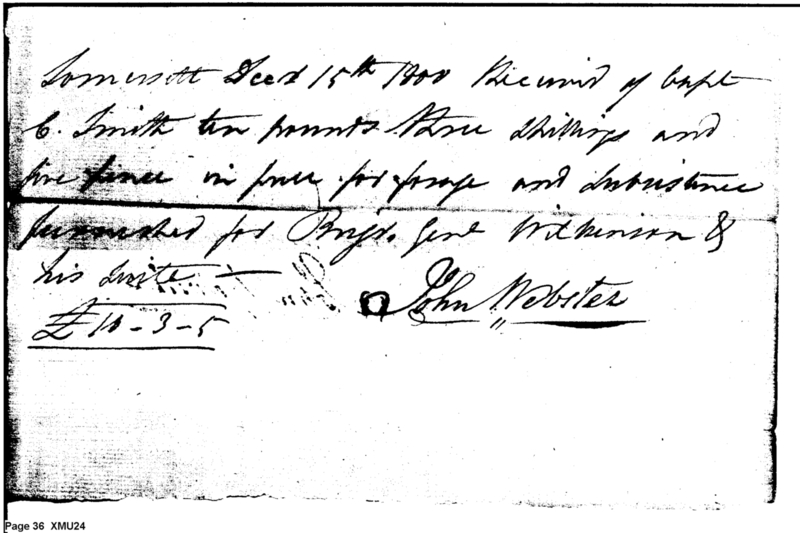 Somersett Decr 15th 1800 Received of Capt
C. Smith ten pounds three shillings and
five pence in full for forage and subsistence
furnished for Brigd. Genl Wilkinson &
his suite —
John Webster
£10-3-5
Page 36 XMU24